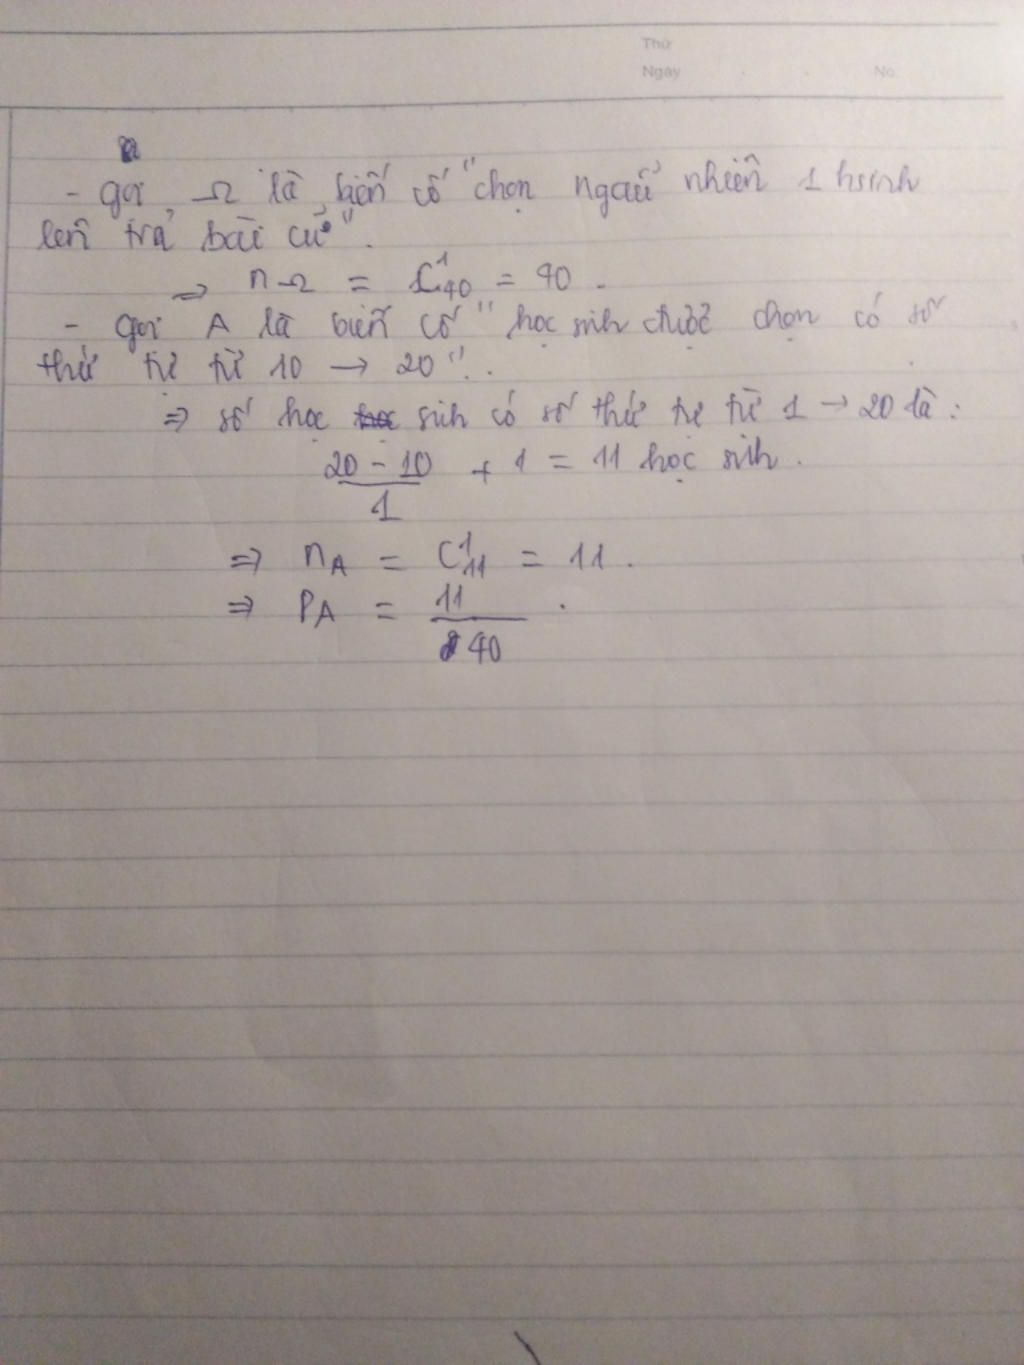 Thứ
Ngày No.
- gọi Ω là biến cố "chọn ngẫu nhiên 1 hsinh
lên trả bài cũ".
⇒ nΩ = C¹₄₀ = 40.
- gọi A là biến cố "học sinh được chọn có số
thứ tự từ 10 → 20".
⇒ số học sinh có số thứ tự từ 1 → 20 là:
(20 - 10)/1 + 1 = 11 học sinh.
⇒ nA = C¹₁₁ = 11.
⇒ PA = 11/40.